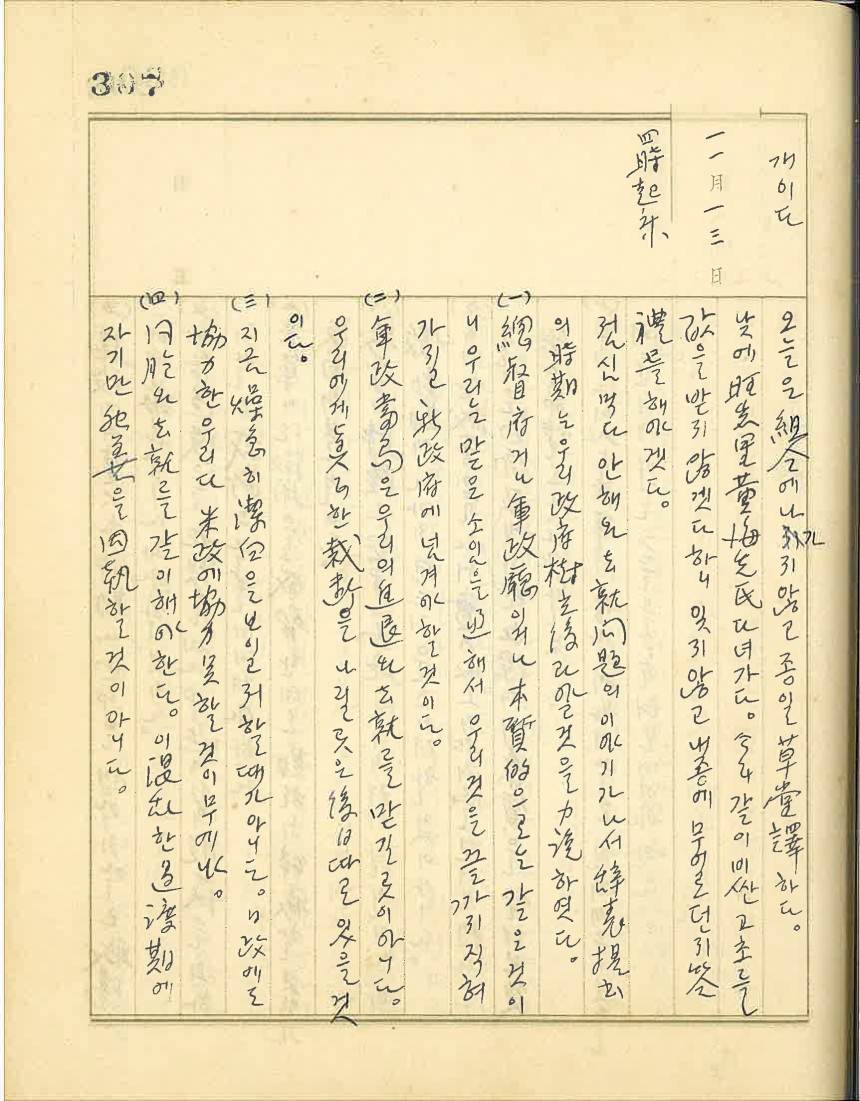 307
개이다
一一月一三日
四時起床
오늘은 組合에 나가지 않고 종일 草堂譯하다。
낮에 旺志里 黃海先氏 다녀가다。 今年 같이 비싼 고초를
값을 받지 않겠다 하니 잊지 않고 내종에 무어로던지 答
禮를 해야겠다。
점심먹다 안해와 去就問題의 이야기가 나서 辭表提出
의 時期는 우리 政府樹立後라야 할것을 力說하였다。
(一) 總督府거나 軍政廳이거나 本質的으로는 같은것이
니 우리는 맡은 소임을 通해서 우리것을 끝까지 직혀
가지고 新政府에 넘겨야할것이다。
(二) 軍政當局은 우리의 進退와 去就를 맡길곳이 아니다。
우리에게 眞正한 裁斷을 나릴곳은 後日 따로 있을것
이다。
(三) 지금 燥急히 潔白을 보이고저 할때가 아니다。 日政에도
協力한 우리다 米政에 協力 못할것이 무에냐。
(四) 同胞와 去就를 같이해야한다。 이 混乱한 過渡期에
자기만 를 固執할것이 아니다。